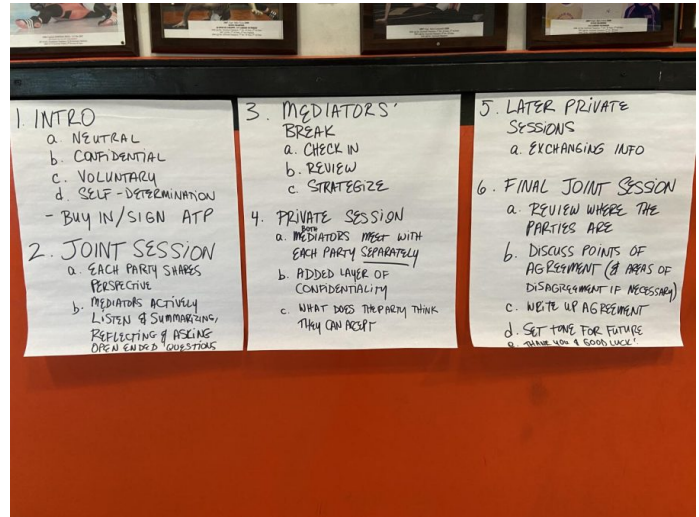 1. INTRO
a. NEUTRAL
b. CONFIDENTIAL
c. VOLUNTARY
d. SELF-DETERMINATION
- BUY IN/SIGN ATP
2. JOINT SESSION
a. EACH PARTY SHARES
PERSPECTIVE
b. MEDIATORS ACTIVELY
LISTEN & SUMMARIZING,
REFLECTING & ASKING
OPEN ENDED QUESTIONS
3. MEDIATORS'
BREAK
a. CHECK IN
b. REVIEW
c. STRATEGIZE
4. PRIVATE SESSION
a. BOTH MEDIATORS MEET WITH
EACH PARTY SEPARATELY
b. ADDED LAYER OF
CONFIDENTIALITY
c. WHAT DOES THE PARTY THINK
THEY CAN ACEPT
5. LATER PRIVATE
SESSIONS
a. EXCHANGING INFO
6. FINAL JOINT SESSION
a. REVIEW WHERE THE
PARTIES ARE
b. DISCUSS POINTS OF
AGREEMENT (& AREAS OF
DISAGREEMENT IF NECESSARY)
c. WRITE UP AGREEMENT
d. SET TONE FOR FUTURE
e. THANK YOU & GOOD LUCK!